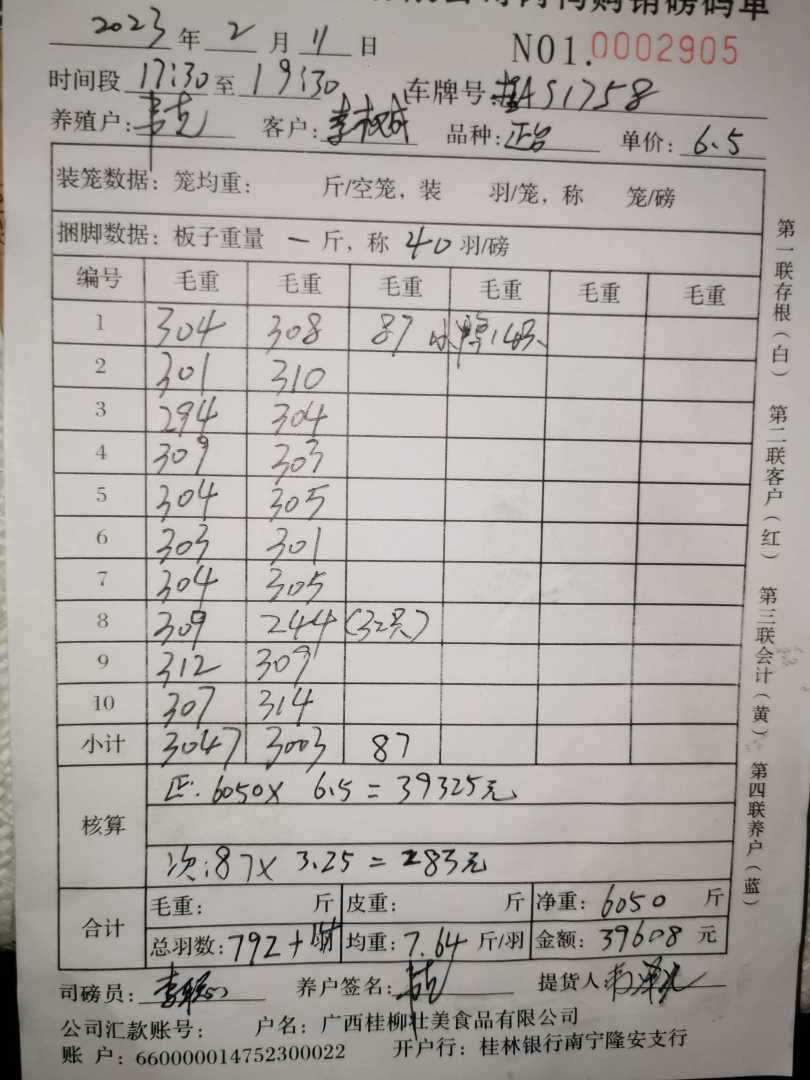 购销磅码单
2023 年 2 月 11 日 NO1.0002905
时间段 17:30 至 19:30 车牌号: AS1758
养殖户: 客户: 李 品种: 正 单价: 6.5
装笼数据: 笼均重: 斤/空笼, 装 羽/笼, 称 笼/磅
捆脚数据: 板子重量 一 斤, 称 40 羽/磅
编号 毛重 毛重 毛重 毛重 毛重 毛重
1 304 308 87
2 301 310
3 294 304
4 309 303
5 304 305
6 303 301
7 304 305
8 309 244 (32只)
9 312 309
10 307 314
小计 3047 3003 87
核算
正: 6050X 6.5 = 39325元
次: 87X 3.25 = 283元
合计
毛重: 斤 皮重: 斤 净重: 6050 斤
总羽数: 792+ 均重: 7.64 斤/羽 金额: 39608 元
司磅员: 李 养户签名: 提货人
公司汇款账号: 户名: 广西桂柳壮美食品有限公司
账 户: 660000014752300022 开户行: 桂林银行南宁隆安支行
第一联存根(白) 第二联客户(红) 第三联会计(黄) 第四联养户(蓝)